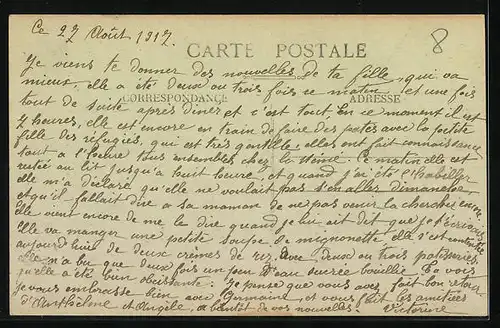 Ce 27 Août 1917.
8
CARTE POSTALE
Je viens te donner des nouvelles de ta fille, qui va
mieux, elle a été deux ou trois fois ce matin, et une fois
CORRESPONDANCE
ADRESSE
tout de suite après diner et c'est tout. En ce moment il est
4 heures, elle est encore en train de faire des patés avec la petite
fille des réfugiés, qui est très gentille, elles ont fait connaissance
tout à l'heure tous ensembles chez la Ce matin elle est
restée au lit jusqu'à huit heure, et quand j'ai été l'habiller
elle m'a déclaré qu'elle ne voulait pas s'en aller dimanche
et qu'il fallait dire a sa maman de ne pas venir la chercher encore,
elle vient encore de me le dire quand je lui ait dit que je t'écrivais
Elle va manger une petite soupe de mignonette elle s'est contentée
aujourd'hui de deux crèmes de riz avec deux ou trois patisseries
elle n'a bu que deux fois un peu d'eau sucrée bouillie. Tu vois
qu'elle a été bien obeissante. Je pense que vous avez fait bon retour
je vous embrasse bien avec Germaine, et vous fait les amitiées
d'Anthelme et Angèle, a bientôt de vos nouvelles. Victorine